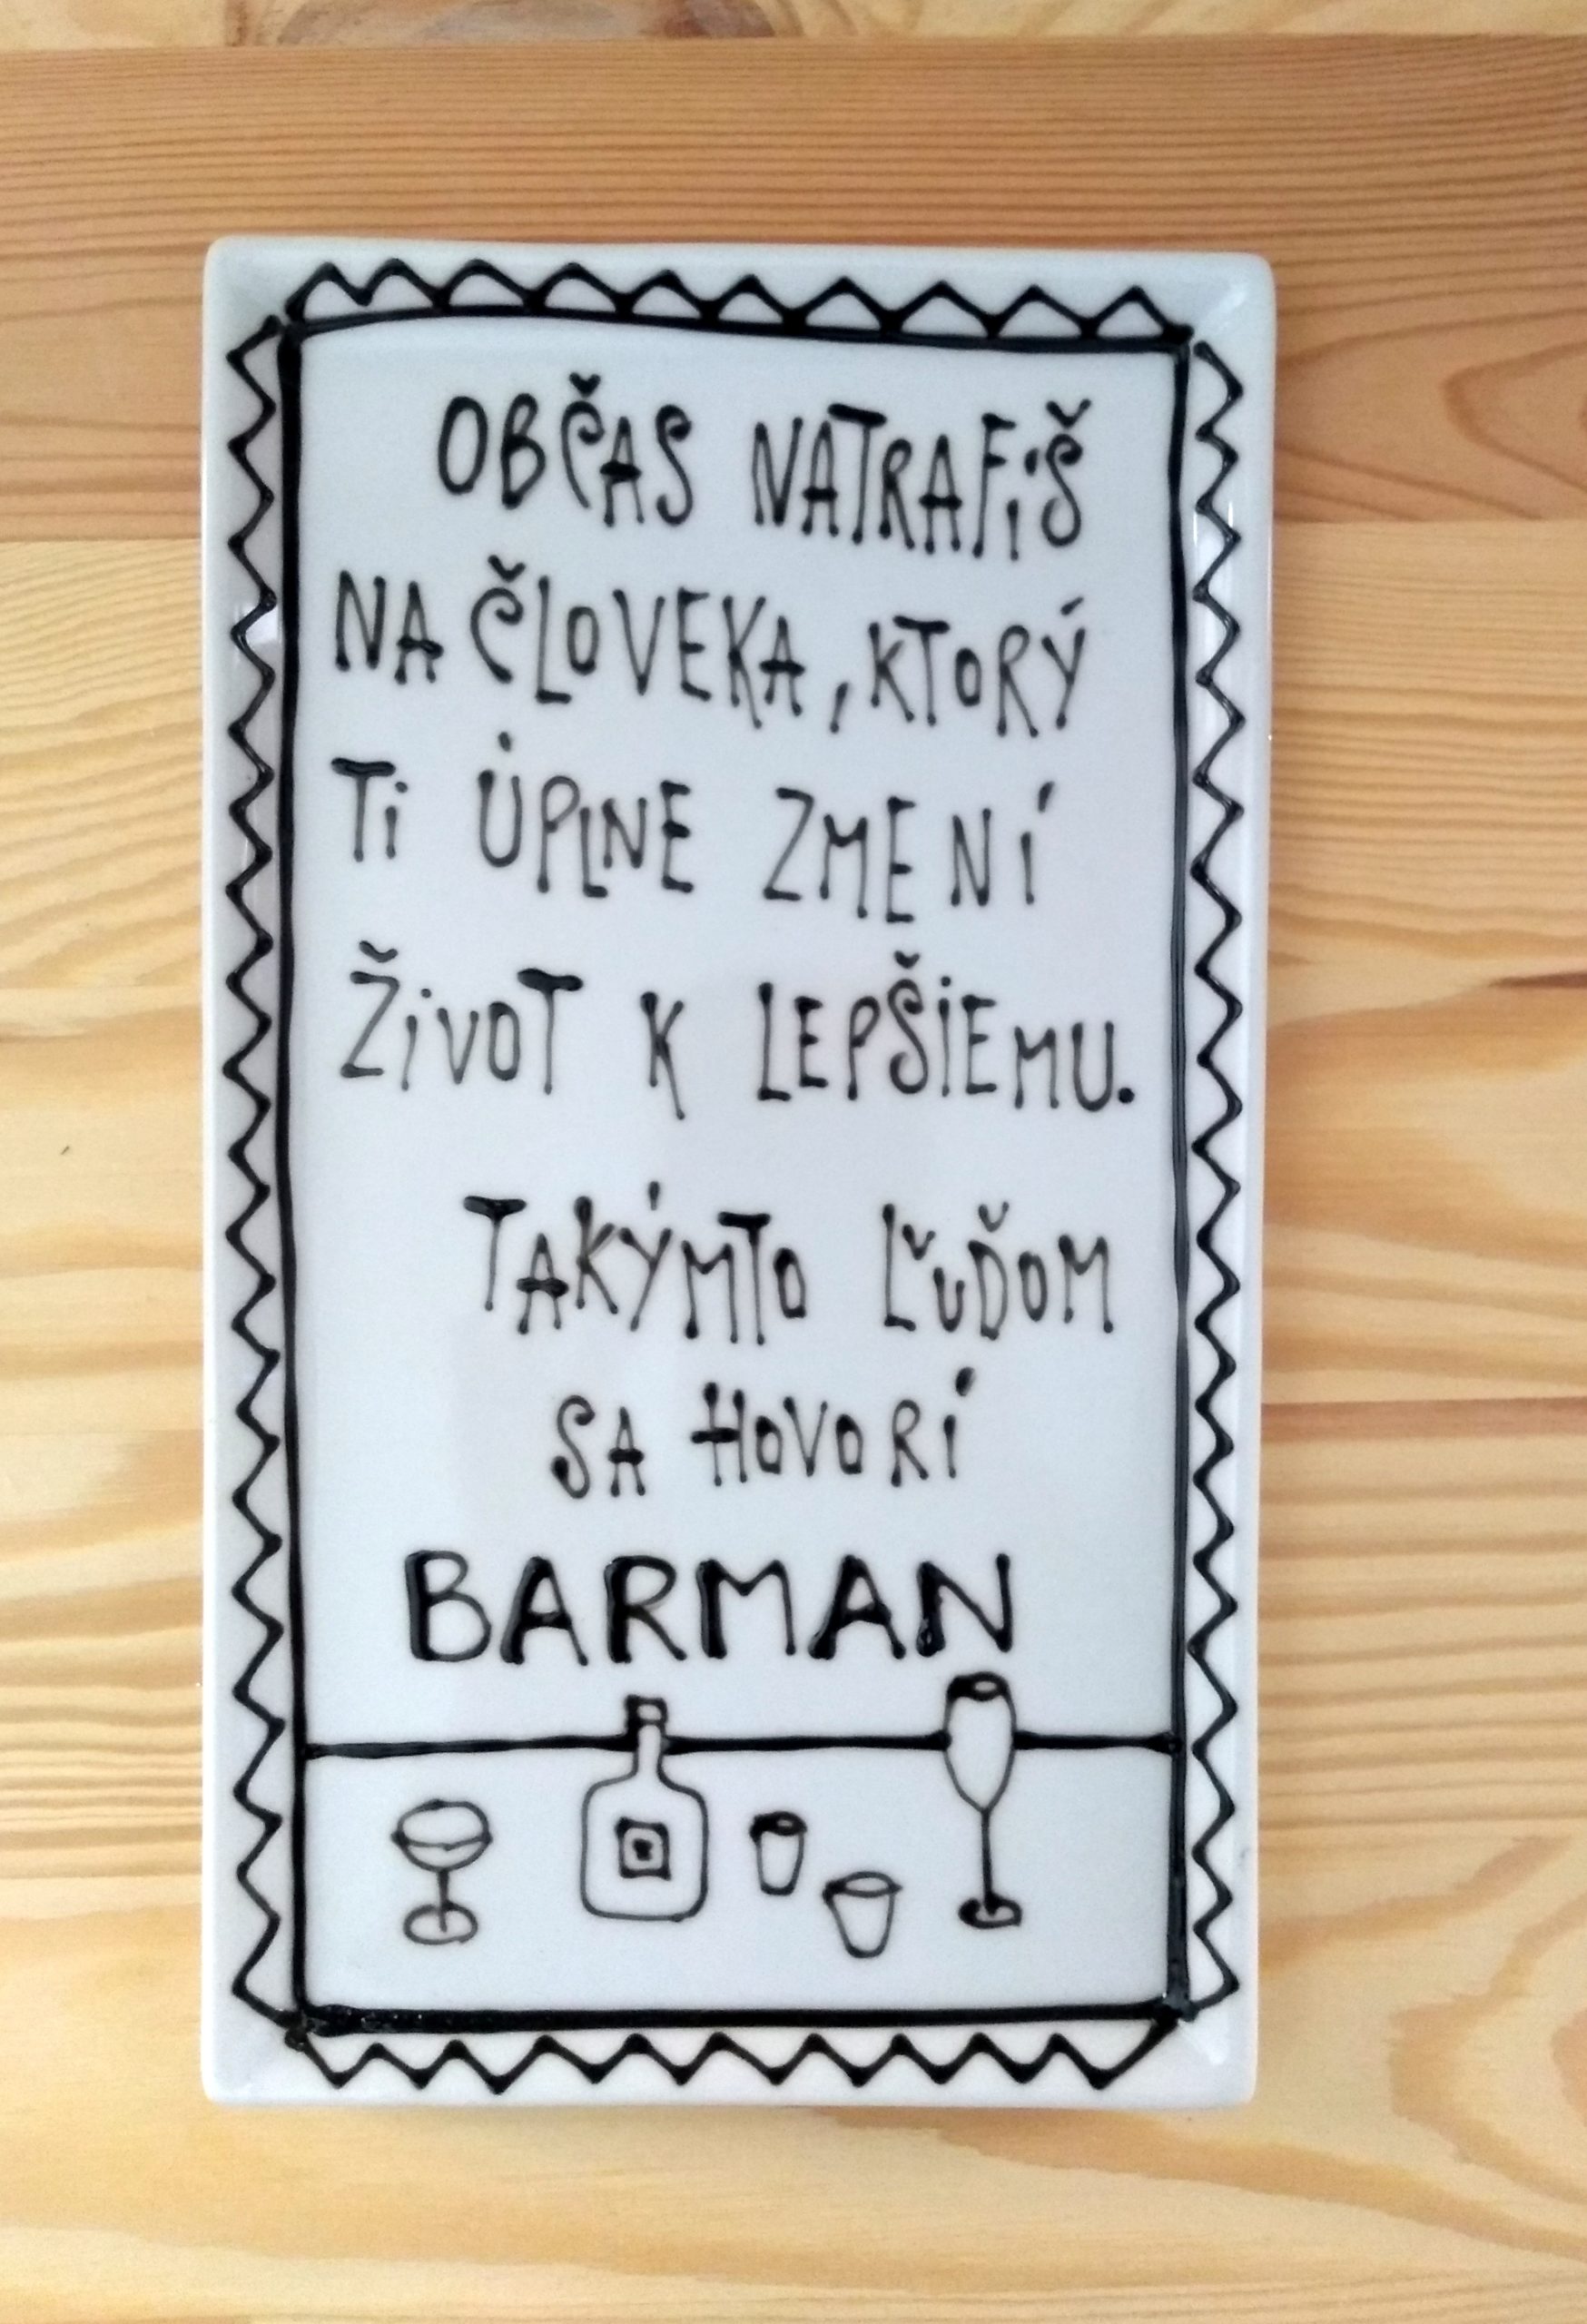 OBČAS NATRAFÍŠ
NA ČLOVEKA, KTORÝ
Ti ÚPLNE ZMENÍ
ŽiVOT K LEPŠiEMU.
TAKÝMTO ĽUĎOM
SA HOVORÍ
BARMAN